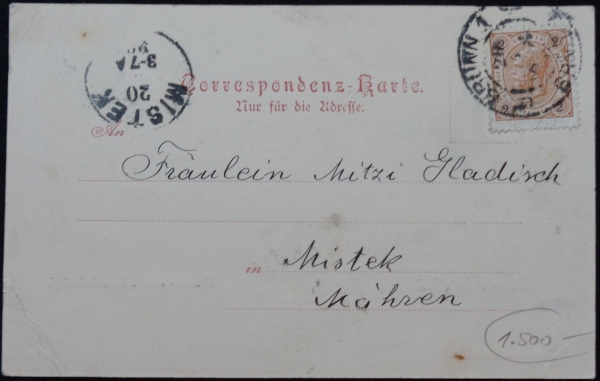 BRÜNN 1
MISTEK
20
3-7A
96
Correspondenz-Karte.
Nur für die Adresse.
An
Fräulein Mitzi Gladisch
in Mistek
Mähren
1.500-